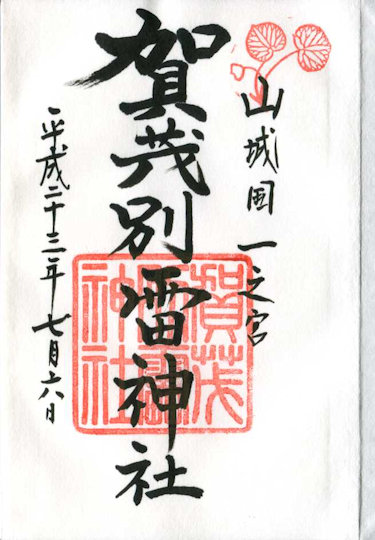 山城国一之宮
賀茂別雷神社
平成二十三年七月六日
賀茂
別雷
神社